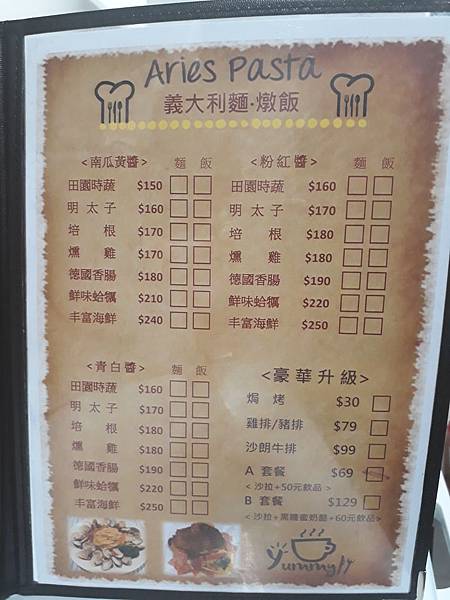 Aries Pasta
義大利麵·燉飯
<南瓜黃醬> 麵 飯
田園時蔬 $150
明太子 $160
培根 $170
燻雞 $170
德國香腸 $180
鮮味蛤蠣 $210
丰富海鮮 $240
<粉紅醬> 麵 飯
田園時蔬 $160
明太子 $170
培根 $180
燻雞 $180
德國香腸 $190
鮮味蛤蠣 $220
丰富海鮮 $250
<青白醬> 麵 飯
田園時蔬 $160
明太子 $170
培根 $180
燻雞 $180
德國香腸 $190
鮮味蛤蠣 $220
丰富海鮮 $250
<豪華升級>
焗烤 $30
雞排/豬排 $79
沙朗牛排 $99
A 套餐 $69
<沙拉+50元飲品>
B 套餐 $129
<沙拉+黑糖蜜奶酪+60元飲品>
yummy